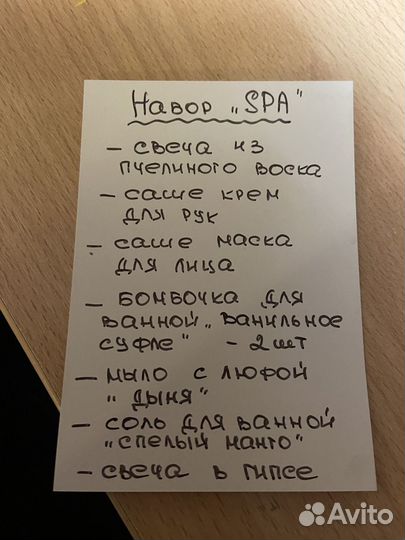 Набор „SPA"
– свеча из
пчелиного воска
– саше крем
для рук
– саше маска
для лица
– бомбочка для
ванной „ванильное
суфле" – 2 шт
– мыло с люфой
„дыня"
– соль для ванной
„спелый манго"
– свеча в гипсе
Avito